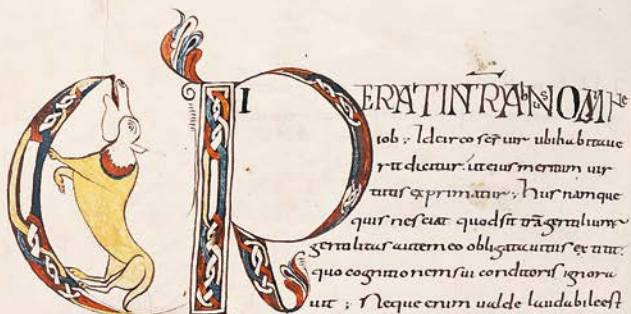 UIR ERAT IN TRA hus NOMINe
iob ; Idcirco scs uir ubi habitaue
rit dicitur . ut eius meritum uir
tutis exprimatur ; hus namque
quis nesciat quod sit tra gentilium
gentilitas autem eo obligata uitiis extitit .
quo cognitionem sui conditoris ignora
uit ; Neque enim ualde laudabile est